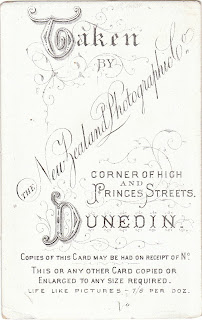 Taken
BY
THE New Zealand Photographic Co.
CORNER OF HIGH
AND
PRINCES STREETS,
DUNEDIN.
COPIES OF THIS CARD MAY BE HAD ON RECEIPT OF No.
THIS OR ANY OTHER CARD COPIED OR
ENLARGED TO ANY SIZE REQUIRED.
LIFE LIKE PICTURES – 7/6 PER DOZ.